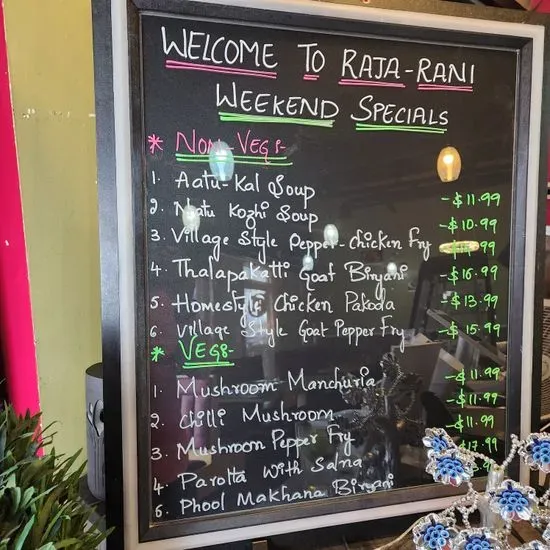 WELCOME TO RAJA-RANI
WEEKEND SPECIALS
* NON-VEG:-
1. Aatu-Kal Soup -$11.99
2. Natu Kozhi Soup -$10.99
3. Village Style Pepper-Chicken Fry
4. Thalapakatti Goat Biryani -$16.99
5. Homestyle Chicken Pakoda -$13.99
6. Village Style Goat Pepper Fry -$15.99
* VEG:-
1. Mushroom Manchuria -$11.99
2. Chilli Mushroom -$11.99
3. Mushroom Pepper Fry -$11.99
4. Parotta with Salna
6. Phool Makhana Biryani